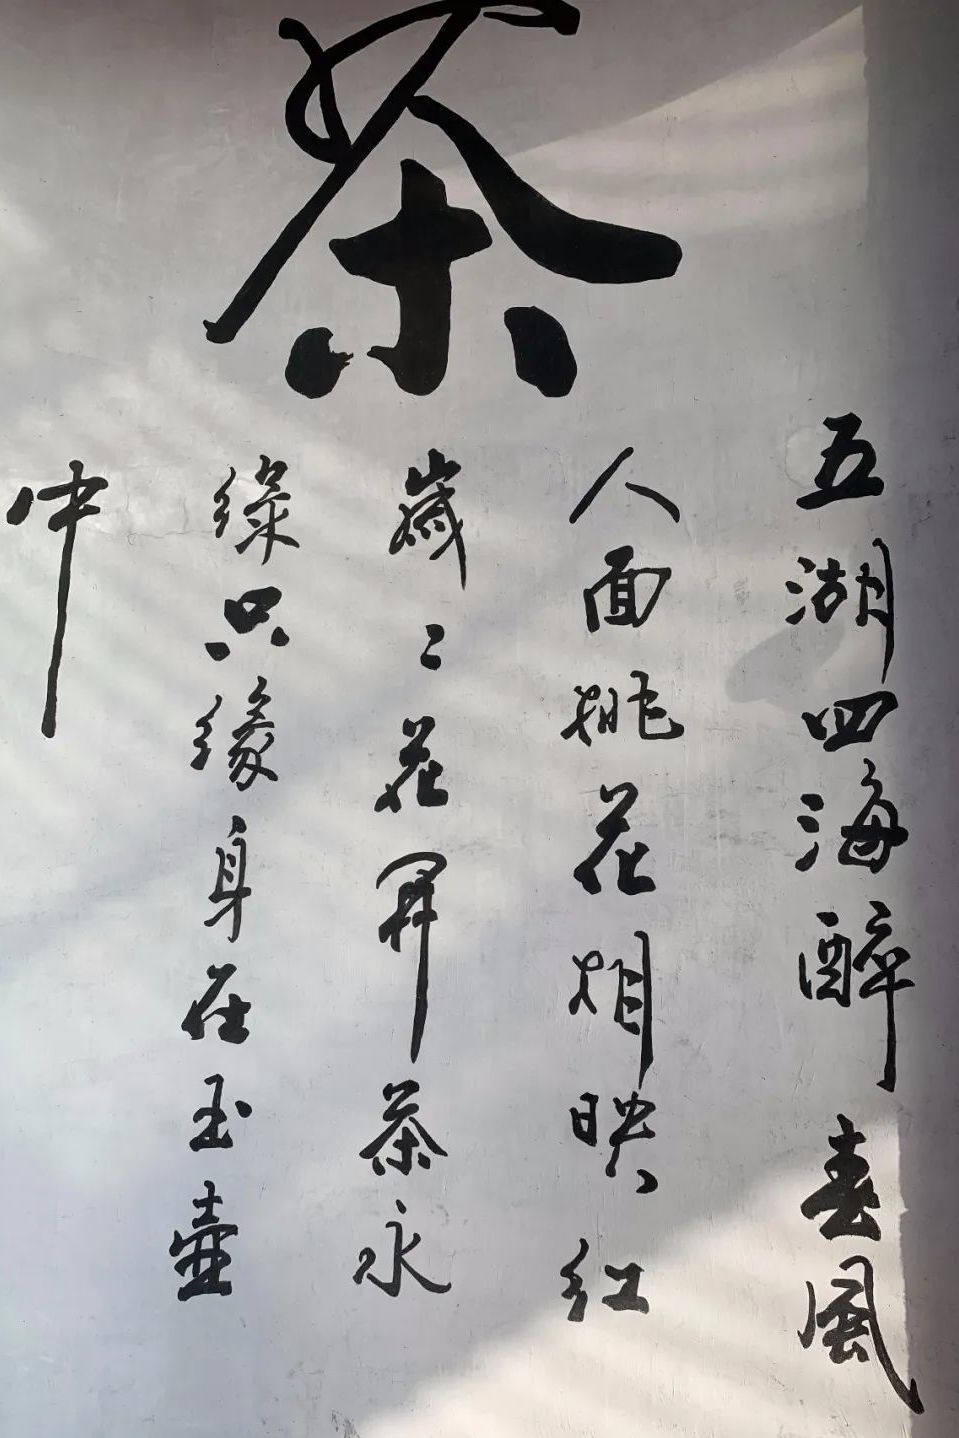 茶
五湖四海醉春風
人面桃花相映红
歲〻花開茶永
綠只緣身在玉壺
中